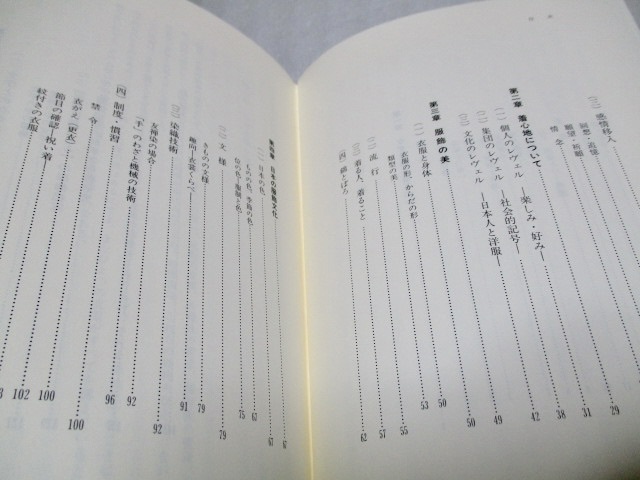 目次
(三) 感情移入 29
回想・追憶 31
願望・祈願 38
情念 42
第二章 着心地について
(一) 個人のレヴェル ―楽しみ・好み― 42
(二) 集団のレヴェル ―社会的記号― 49
(三) 文化のレヴェル ―日本人と洋服― 50
第三章 服飾の美 50
(一) 衣服と身体 53
衣服の形、からだの形
(二) 着る人、着ること 57
(三) 流行
(四) 62
第四章 日本の服飾文化 67
(一) 日本の色 67
ものの色、季節の色 67
位の色 75
(二) 文様 79
きものの文様 79
趣向―衣裳くらべ 91
(三) 染織技術 92
友禅染の場合 92
「手」のわざと機械の技術 96
(四) 制度・慣習 100
禁令 100
衣がえ「更衣」 102
節目の確認―祝い着
紋付きの衣服